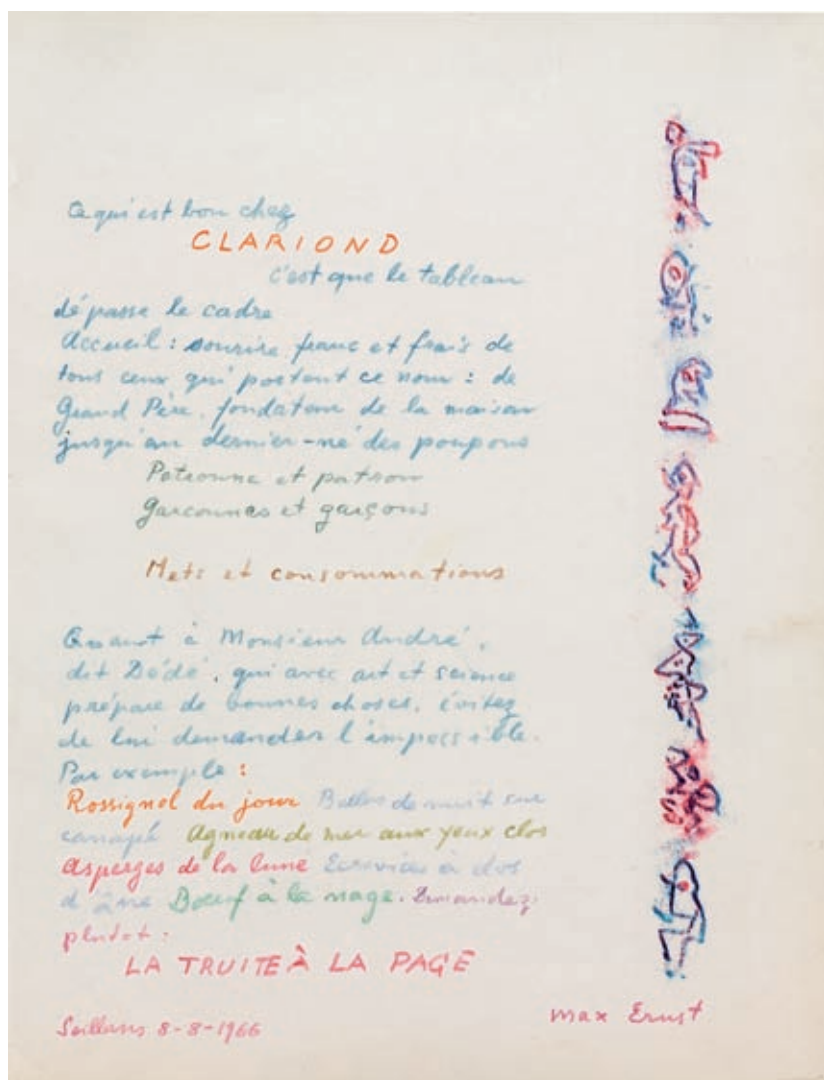 Ce qui est bon chez
CLARIOND
c'est que le tableau
dépasse le cadre
Accueil : sourire franc et frais de
tous ceux qui portent ce nom : de
Grand Père, fondateur de la maison
jusqu'au dernier-né des poupons
Patronne et patron
Garconnes et garçons
Mets et consommations
Quant à Monsieur André,
dit Dédé, qui avec art et science
prépare de bonnes choses, évitez
de lui demander l'impossible.
Par exemple :
Rossignol du jour Belles de nuit sur
canapé Agneau de mer aux yeux clos
Asperges de la lune Ecrevices à dos
d'âne Boeuf à la nage. Demandez
plutot :
LA TRUITE À LA PAGE
Seillans 8-8-1966
max Ernst